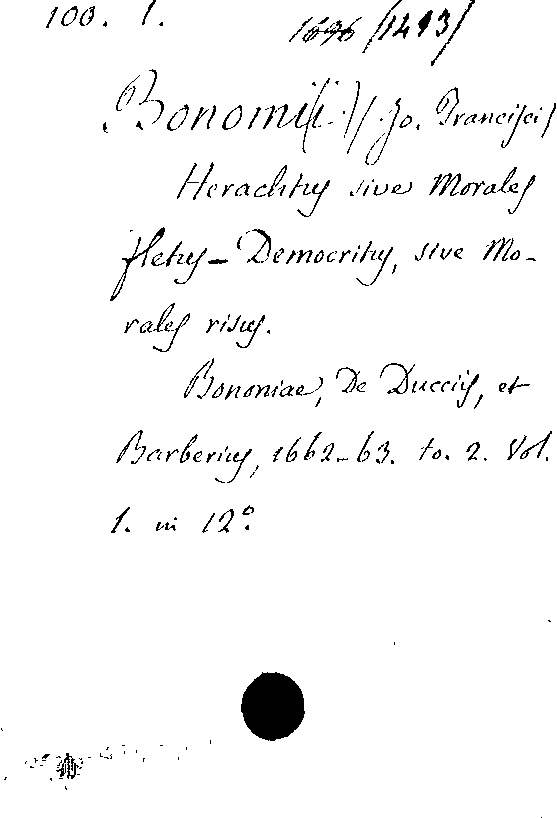 100. 1.
1696 /1493/
Bonomii (.)/ Jo. Francisci
Heraclitus sive Morales
fletus – Democritus, sive Mo-
rales risus.
Bononiae, De Ducciis, et
Barberius, 1662-63. to. 2. Vol.
1. in 12º.